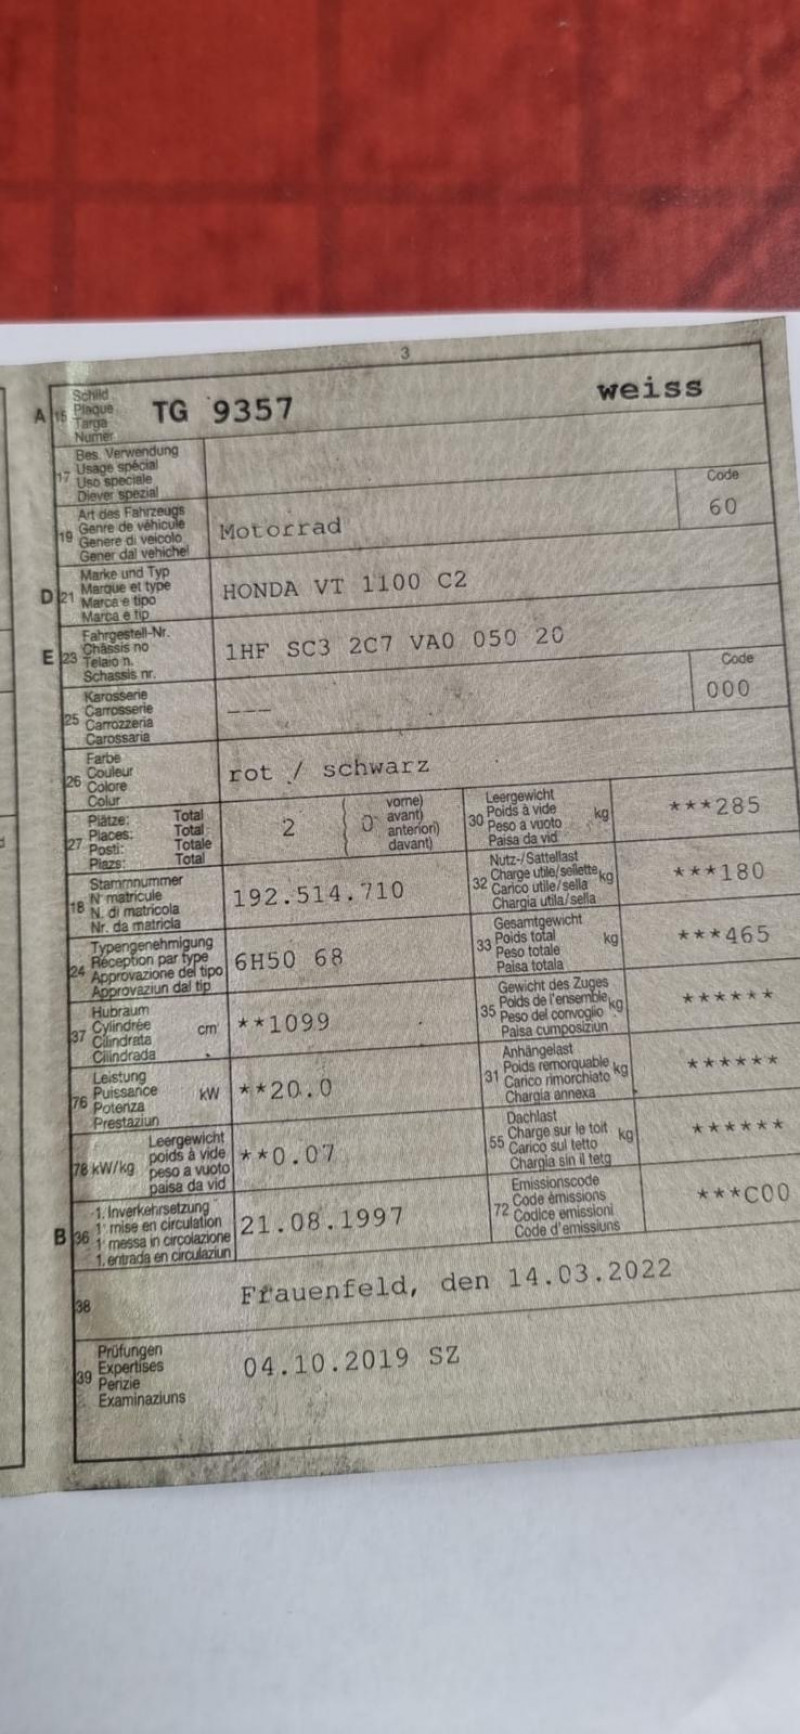 3
A 15 Schild Plaque Targa Numer TG 9357 weiss
17 Bes. Verwendung
Usage spécial
Uso speciale
Diever spezial
19 Art des Fahrzeugs
Genre de véhicule
Genere di veicolo
Gener dal vehichel
Motorrad
Code
60
D 21 Marke und Typ
Marque et type
Marca e tipo
Marca e tip
HONDA VT 1100 C2
E 23 Fahrgestell-Nr.
Châssis no
Telaio n.
Schassis nr.
1HF SC3 2C7 VA0 050 20
25 Karosserie
Carrosserie
Carrozzeria
Carossaria
---
Code
000
26 Farbe
Couleur
Colore
Colur
rot / schwarz
27 Plätze: Total
Places: Total
Posti: Totale
Plazs: Total
2
0
vorne)
avant)
anteriori)
davant)
30 Leergewicht
Poids à vide kg
Peso a vuoto
Paisa da vid
***285
18 Stammnummer
N matricule
N. di matricola
Nr. da matricla
192.514.710
32 Nutz-/Sattellast
Charge utile/sellette kg
Carico utile/sella
Chargia utila/sella
***180
24 Typengenehmigung
Réception par type
Approvazione del tipo
Approvaziun dal tip
6H50 68
33 Gesamtgewicht
Poids total kg
Peso totale
Paisa totala
***465
37 Hubraum
Cylindrée cm
Cilindrata
Cilindrada
**1099
35 Gewicht des Zuges
Poids de l'ensemble kg
Peso del convoglio
Paisa cumposiziun
******
76 Leistung
Puissance kW
Potenza
Prestaziun
**20.0
31 Anhängelast
Poids remorquable kg
Carico rimorchiato
Chargia annexa
******
78 kW/kg
Leergewicht
poids à vide
peso a vuoto
paisa da vid
**0.07
55 Dachlast
Charge sur le toit kg
Carico sul tetto
Chargia sin il tetg
******
B 36 1. Inverkehrsetzung
1' mise en circulation
1' messa in circolazione
1. entrada en circulaziun
21.08.1997
72 Emissionscode
Code émissions
Codice emissioni
Code d'emissiuns
***C00
38 Frauenfeld, den 14.03.2022
39 Prüfungen
Expertises
Perizie
Examinaziuns
04.10.2019 SZ